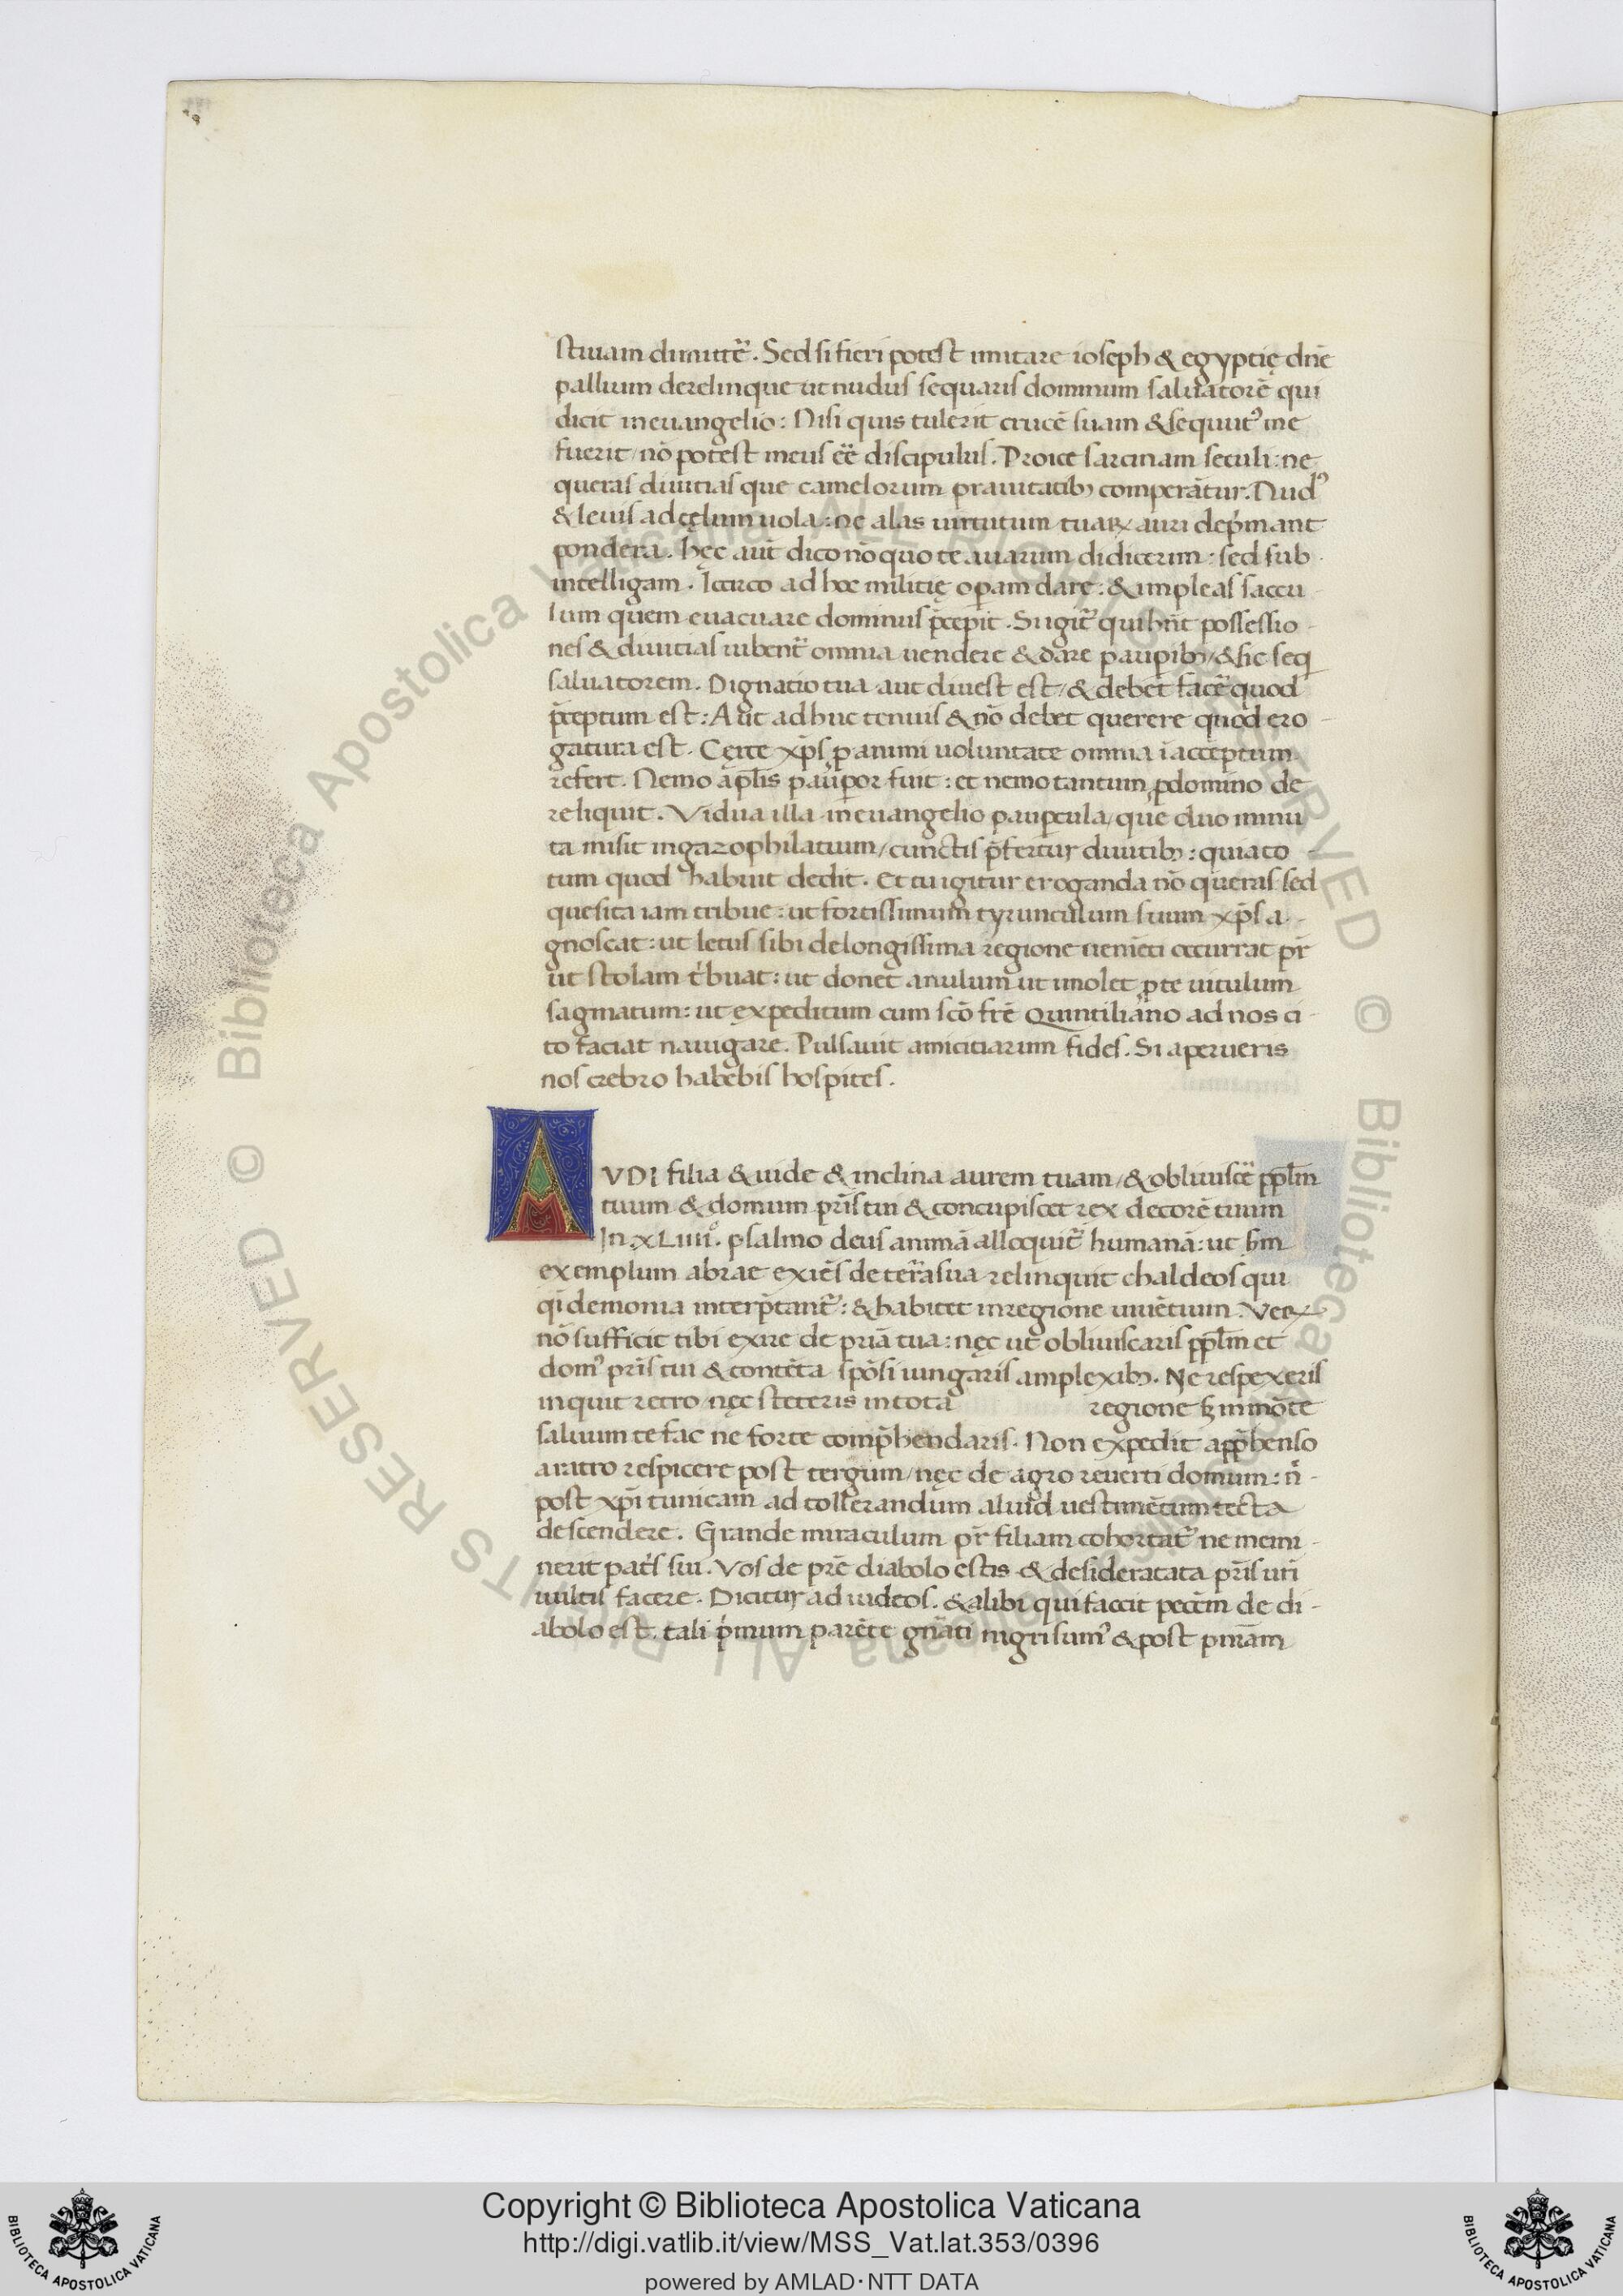 stiuam dimittē. Sed si fieri potest imitare ioseph & egyptię dn̄e
pallium derelinque ut nudus sequaris dominum saluatorē qui
dicit in euangelio: Nisi quis tulerit crucē suam & sequut᾿ me
fuerit/ nō potest meus eē discipulus. Proice sarcinam seculi: ne
queras diuitias que camelorum prauitatibꝫ comperātur. Nud᾿
& leuis ad cęlum uola: ne alas uirtutum tuaꝝ auri dep̍mant
pondera. hęc aūt dico nō quo te auarum didicerim: sed sub
intelligam. Iccirco ad hoc militię oꝑam dare: & impleas saccu-
lum quem euacuare dominus p̄cepit. Si igit᷑ qui hn̄t possessio-
nes & diuitias iubent᷑ omnia uendere & dare pauꝑibꝫ/ & sic seq
saluatorem. Dignatio tua aut diuest est/ & debet facē quod
p̄ceptum est: Aut adhuc tenuis & nō debet querere quod ero-
gatura est. Cęrte xp̄s ꝑ animi uoluntate omnia ī acceptum
refert. Nemo ap̄lis pauꝑor fuit: et nemo tantum ꝓ domino de
reliquit. Vidua illa in euangelio pauꝑcula/ que duo minu
ta misit in gazophilatium/ cunctis p̄fertur diuitibꝫ: quia to-
tum quod habuit dedit. Et tu igitur eroganda nō queras sed
quesita iam tribue: ut fortissimum tyrunculum suum xp̄s a-
gnoscat: ut letus sibi de longissima regione ueniēti occurrat pr̄
ut stolam t̍buat: ut donet anulum ut imolet ꝓ te uitulum
sagmatum: ut expeditum cum sc̄o fr̄e Quintiliano ad nos ci-
to faciat nauigare. Pulsauit amicitiarum fides. Si aperueris
nos crebro habebis hospites.
AVDI filia & uide & inclina aurem tuam/ & obliuiscē pp̄lm
tuum & domum pr̄is tui & concupiscet rex decorē tuum
In .xLiiiiº. psalmo deus animā alloquit᷑ humanā: ut sm̄
exemplum abrae exiēs de terra sua relinquit chaldeos qui
q̄ demonia interp̄tant᷑: & habitet in regione uiuētium. Veꝝ
nō sufficit tibi exire de pr̄ia tua: nęc ut obliuiscaris pp̄lm et
dom᾿ pr̄is tui & contēta spōsi iungaris amplexibꝫ. Ne respexeris
inquit retro/ nęc steteris in tota regione sꝫ in mōte
saluum te fac ne forte comp̄hendaris. Non expedit app̄henso
aratro respicere post tergum/ nęc de agro reuerti domum: n̄-
post xp̄i tunicam ad tollerandum aliud uestimētum tecta
descendere. Grande miraculum pr̄ filiam cohortat᷑ ne memi-
nerit pat̍s sui. Vos de pr̄e diabolo estis & desideratata pr̄is ur̄i
uultis facere. Dicitur ad iudeos. & alibi qui faccit pecc̄m de di-
abolo est. tali p̍mum parēte gn̄ati nigri sum᾿ & post pn̄iam
Copyright © Biblioteca Apostolica Vaticana
http://digi.vatlib.it/view/MSS_Vat.lat.353/0396
powered by AMLAD·NTT DATA
BIBLIOTECA APOSTOLICA VATICANA
BIBLIOTECA APOSTOLICA VATICANA
© Biblioteca Apostolica Vaticana ALL RIGHTS RESERVED
© Biblioteca Apostolica Vaticana ALL RIGHTS RESERVED